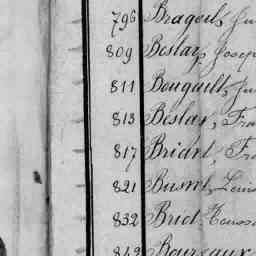 796 Brageul, Ju
809 Boslay, Josep
811 Bougault, Ju
813 Boslay, Fra
817 Briart, Fra
821 Busnel, Louis
832 Briot, Toussa
842 Bourgaux